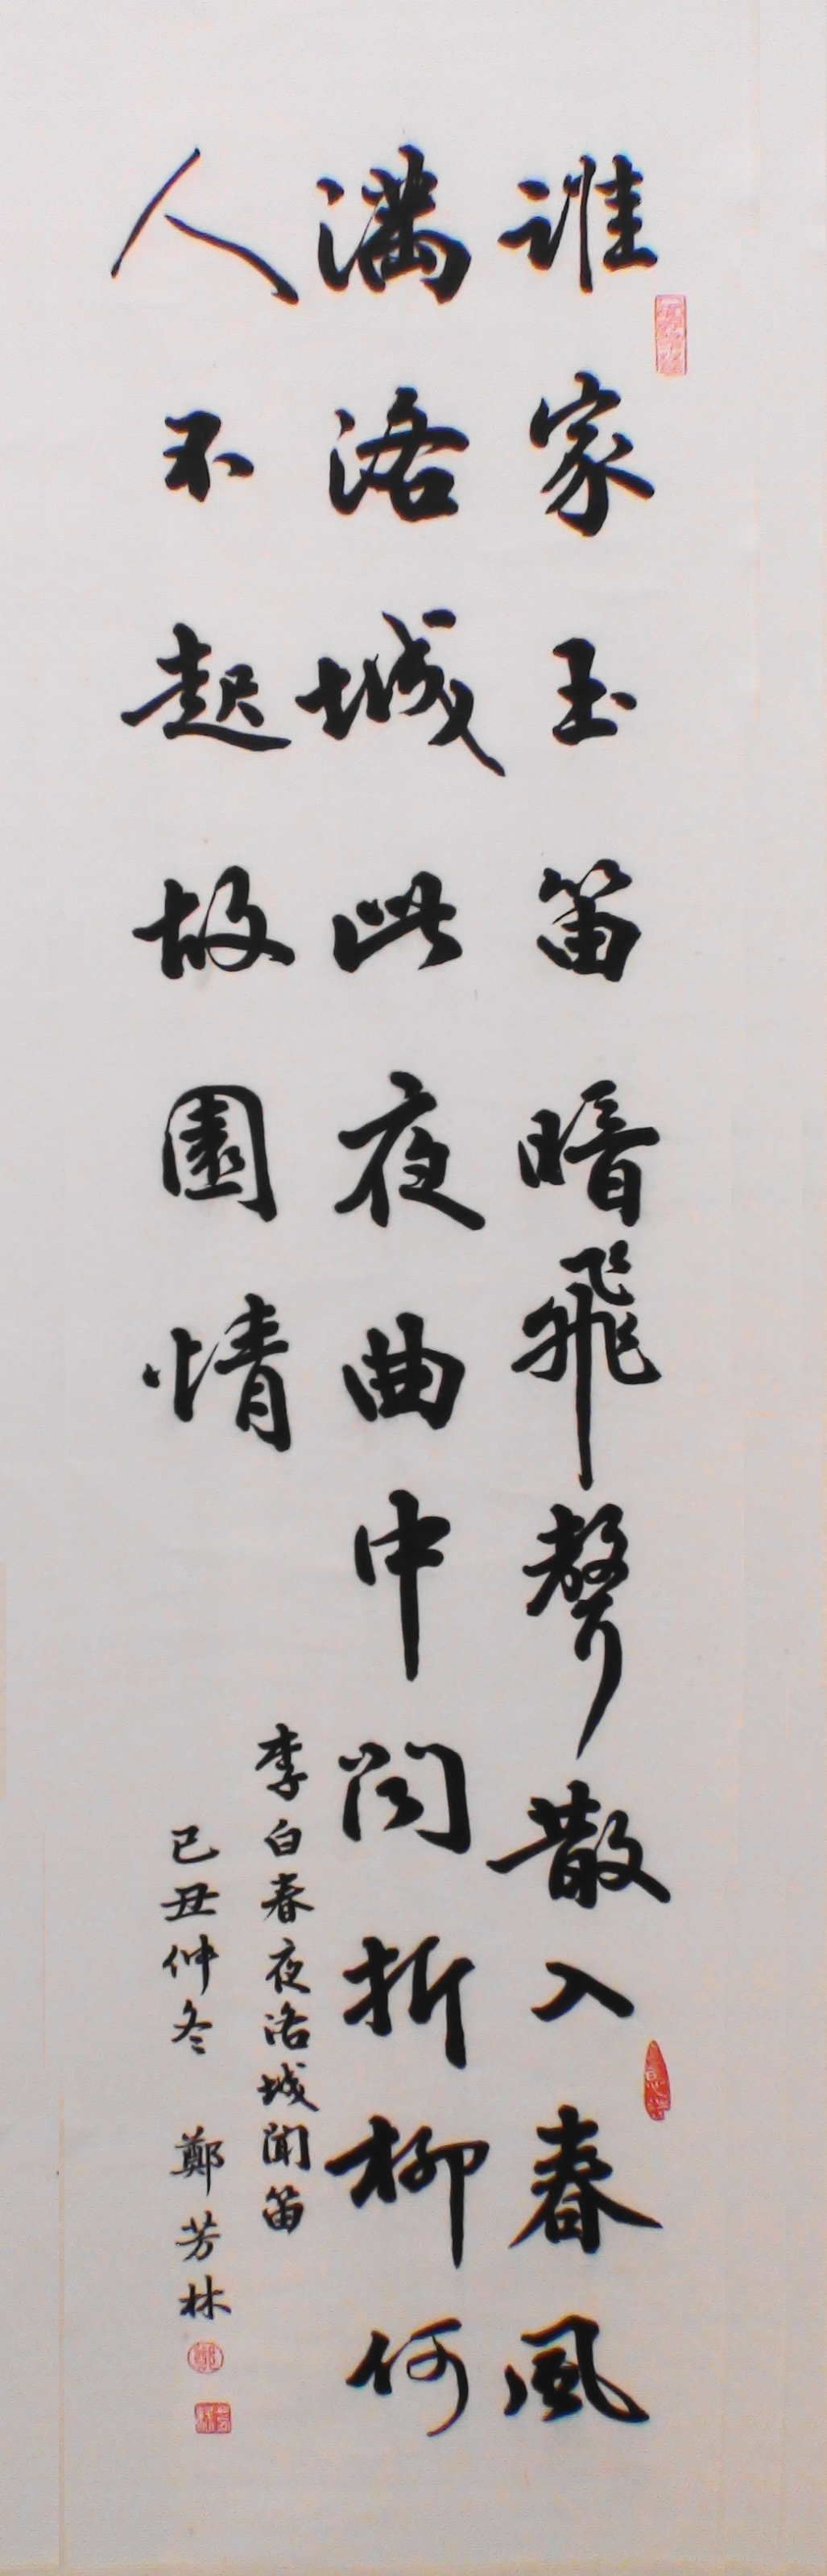 誰家玉笛暗飛聲散入春風
滿洛城此夜曲中聞折柳何
人不起故園情
李白春夜洛城聞笛
己丑仲冬 鄭芳林